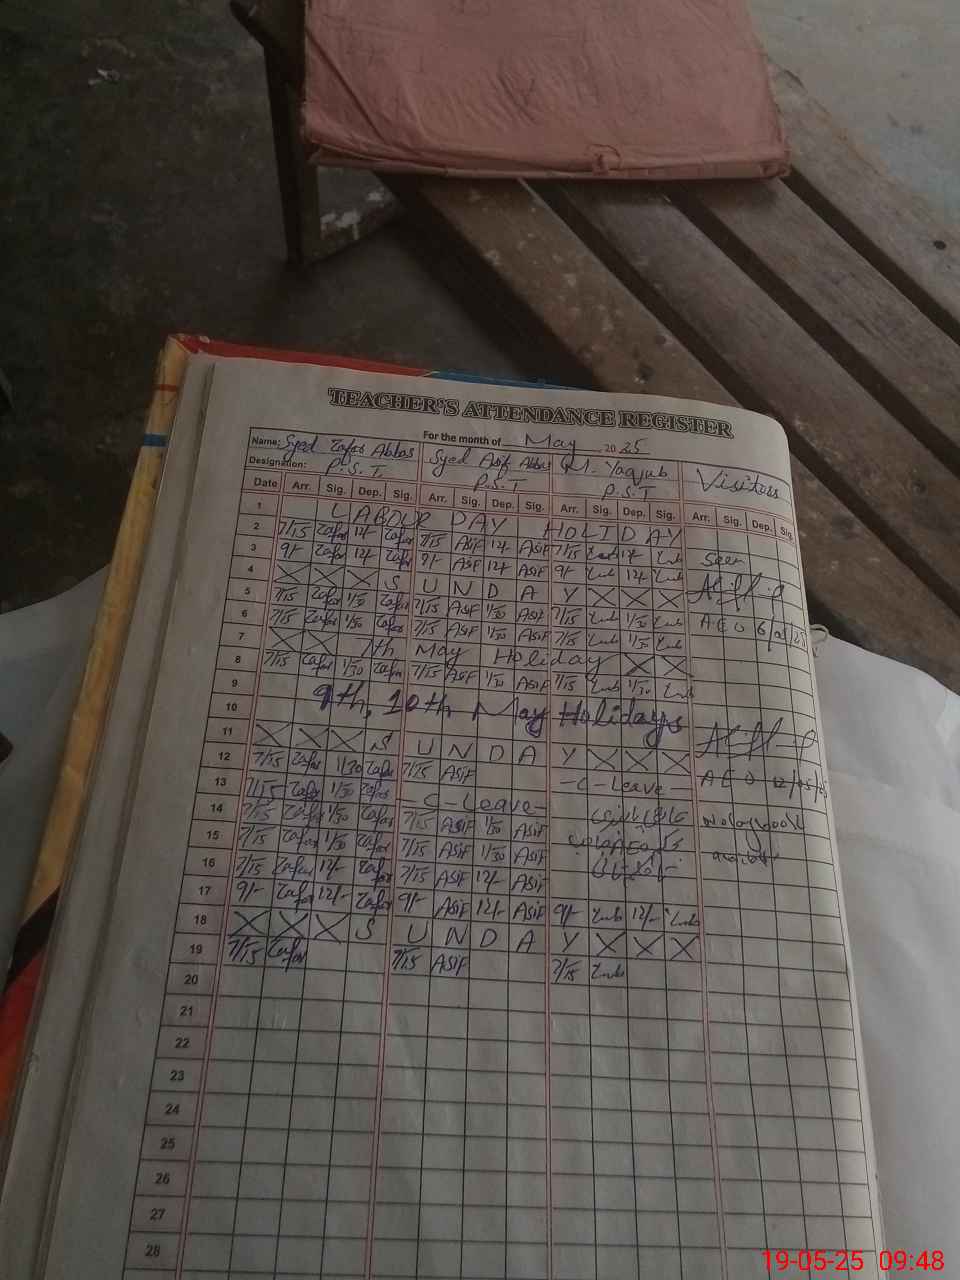 TEACHER'S ATTENDANCE REGISTER
For the month of May 2025
Name: Syed Zafar Abbas Syed Asif Abbas M. Yaqub Visitors
Designation: P.S.T. P.S.T P.S.T
Date Arr. Sig. Dep. Sig. Arr. Sig. Dep. Sig. Arr. Sig. Dep. Sig. Arr. Sig. Dep. Sig.
1 LABOUR DAY HOLIDAY
2 7/15 Zafar 12/- Zafar 7/15 Asif 12/- Asif 7/15 12/- Seen
3 9/- Zafar 12/- Zafar 9/- Asif 12/- Asif 9/- 12/-
4 X X X S U N D A Y X X X
5 7/15 Zafar 1/30 Zafar 7/15 Asif 1/30 Asif 7/15 1/30 AEO
6 7/15 Zafar 1/30 Zafar 7/15 Asif 1/30 Asif 7/15 1/30
7 X X 7th May Holiday X X
8 7/15 Zafar 1/30 Zafar 7/15 Asif 1/30 Asif 7/15 1/30
9
10 9th, 10th May Holidays
11 X X X S U N D A Y X X X
12 7/15 Zafar 1/30 Zafar 7/15 Asif -C-Leave- AEO 12/05/25
13 7/15 Zafar 1/30 Zafar -C-Leave-
14 7/15 Zafar 1/30 Zafar 7/15 Asif 1/30 Asif
15 7/15 Zafar 1/30 Zafar 7/15 Asif 1/30 Asif
16 7/15 Zafar 12/- Zafar 7/15 Asif 12/- Asif
17 9/- Zafar 12/- Zafar 9/- Asif 12/- Asif 9/- 12/-
18 X X X S U N D A Y X X X
19 7/15 Zafar 7/15 Asif 7/15
20
21
22
23
24
25
26
27
28
19-05-25 09:48